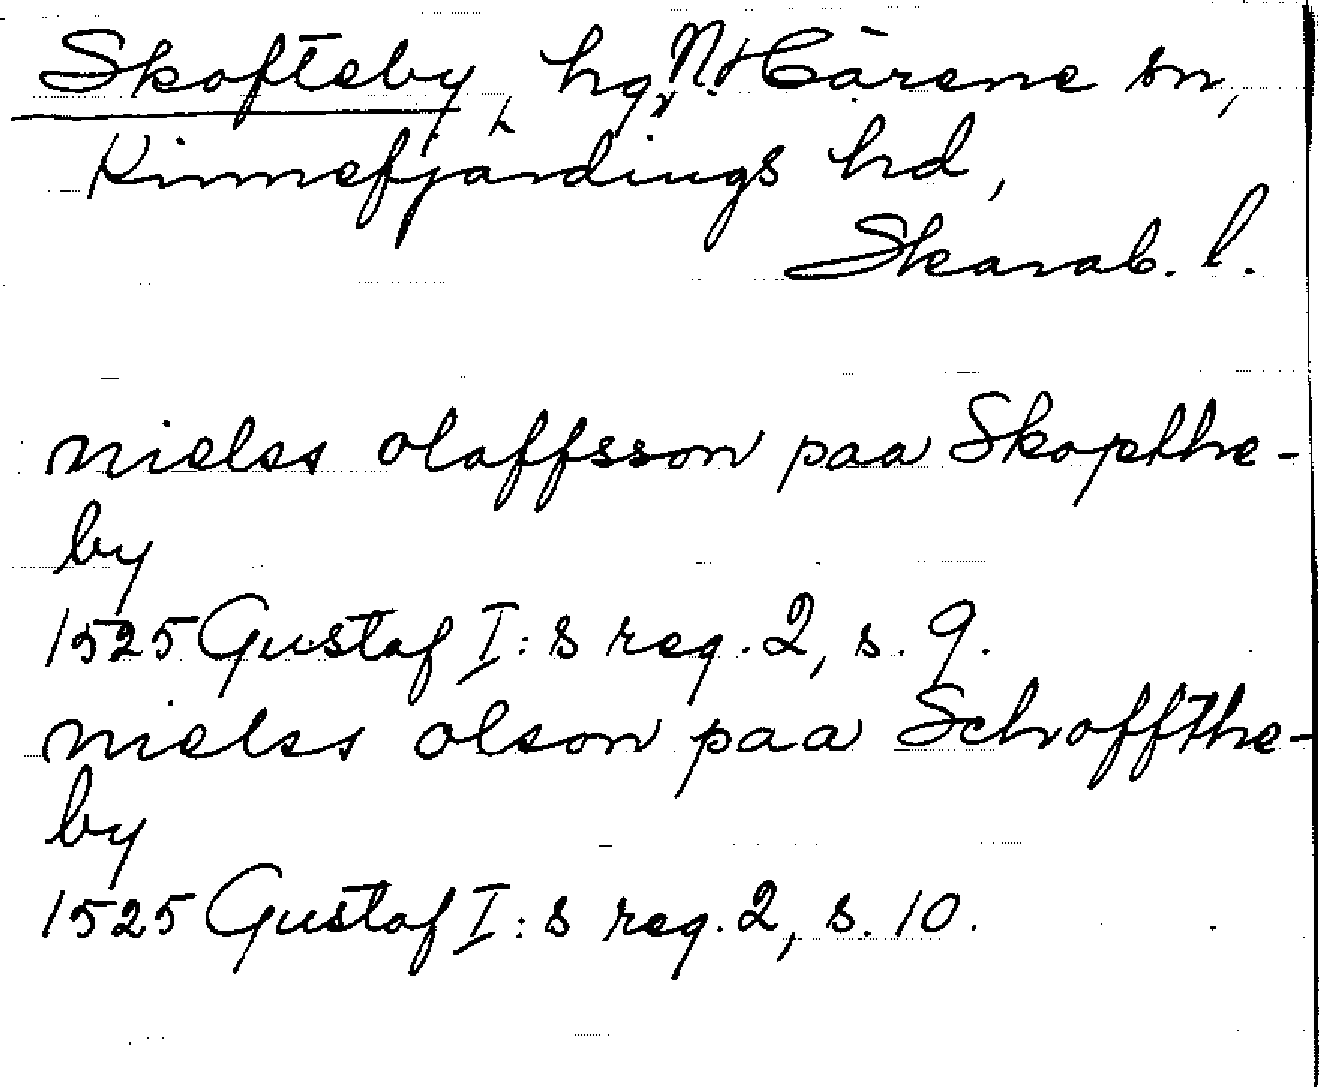 Skofteby, hg, N. Härene sn,
Kinnefjärdings hd,
Skarab. l.
nielss olaffsson paa Skopthe-
by
1525 Gustaf I:s reg. 2, s. 9.
nielss olson paa Schoffthe-
by
1525 Gustaf I:s reg. 2, s. 10.